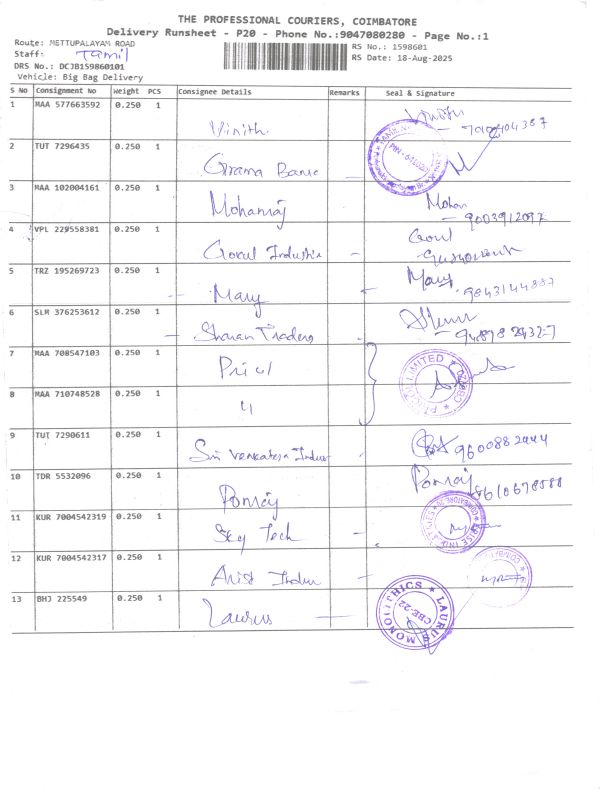 THE PROFESSIONAL COURIERS, COIMBATORE
Delivery Runsheet - P20 - Phone No.:9047080280 - Page No.:1
Route: METTUPALAYAM ROAD
RS No.: 1598601
Staff: Tamil
RS Date: 18-Aug-2025
DRS No.: DCJB159860101
Vehicle: Big Bag Delivery
S No Consignment No Weight PCS Consignee Details Remarks Seal & Signature
1 MAA 577663592 0.250 1 Vinith
2 TUT 7296435 0.250 1 Grama Bank
3 MAA 102004161 0.250 1 Mohanraj Mohan 9003912097
4 VPL 229558381 0.250 1 Gokul Industries
5 TRZ 195269723 0.250 1 Mary Mary 9843144887
6 SLM 376253612 0.250 1 Sharan Traders
7 MAA 708547103 0.250 1 Pricol LIMITED
8 MAA 710748528 0.250 1 "
9 TUT 7290611 0.250 1 Sri Venkatesa Indus 9600882444
10 TDR 5532096 0.250 1 Ponraj Ponraj
11 KUR 7004542319 0.250 1 Sky Tech
12 KUR 7004542317 0.250 1 Indus
13 BHJ 225549 0.250 1 Laurus LAURUS MONOLITHICS CBE-22